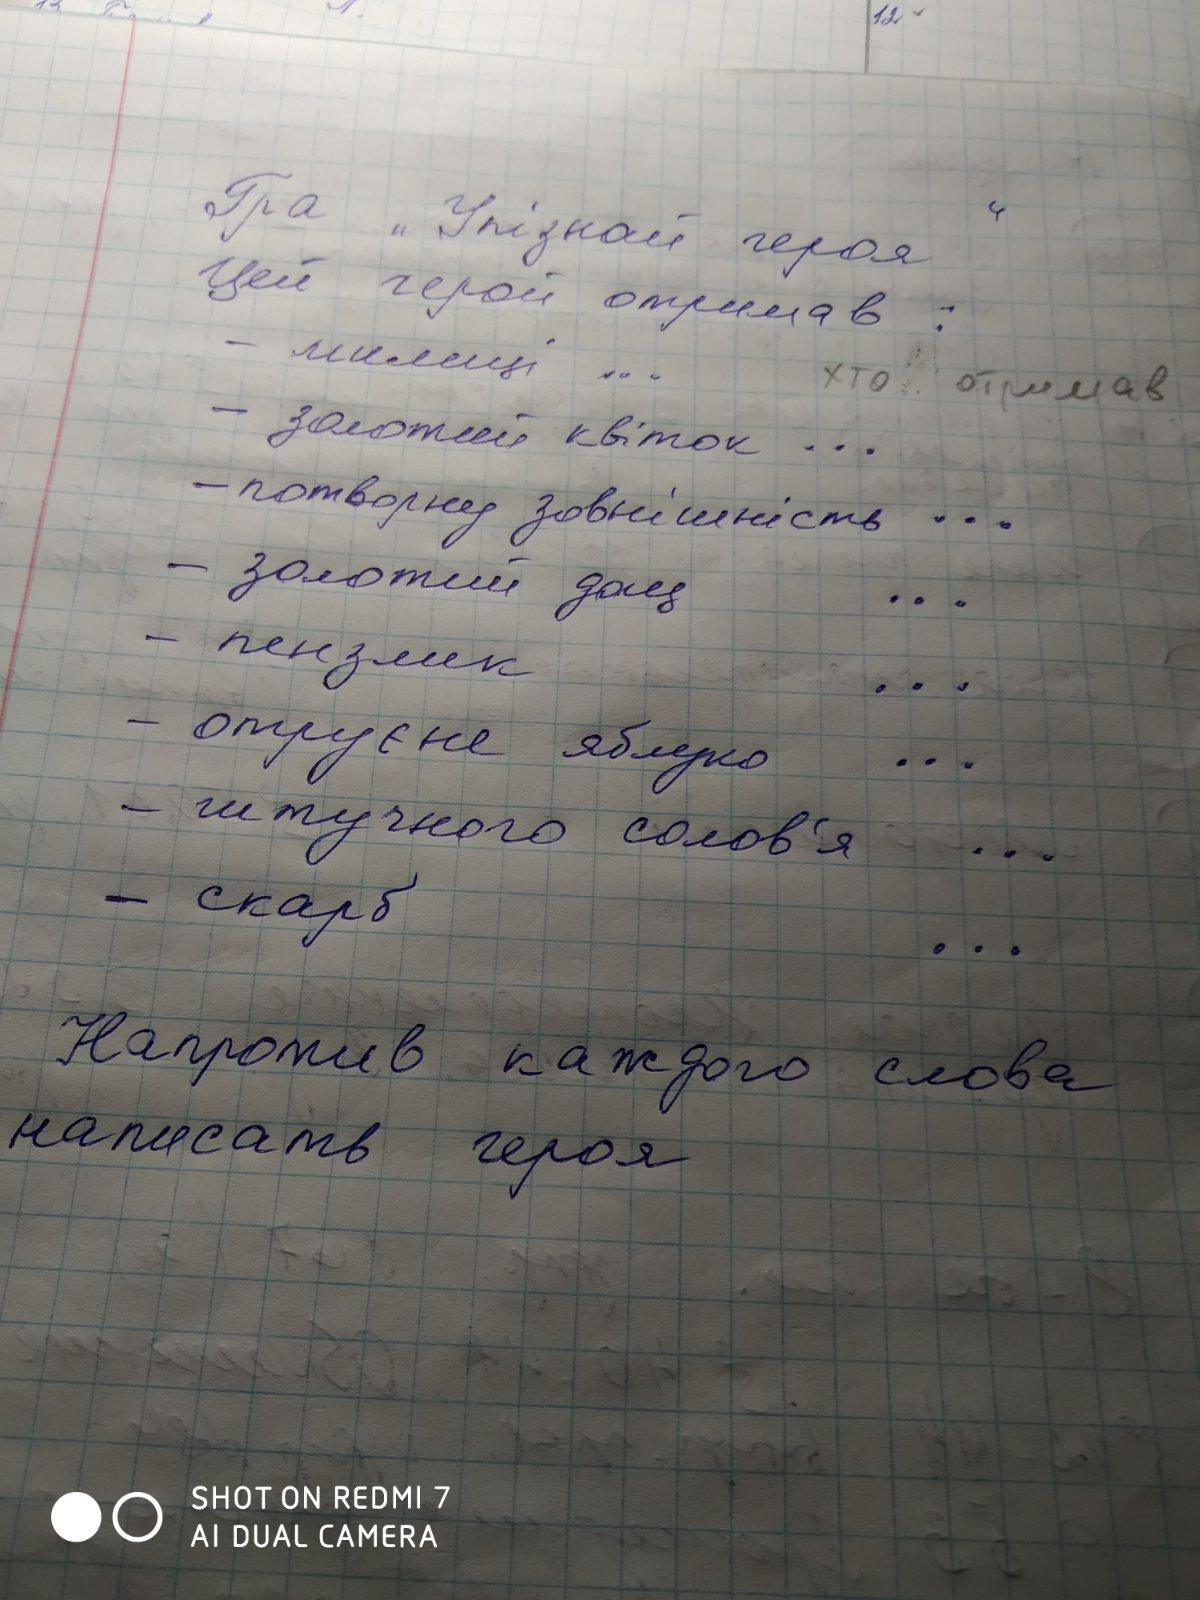 12.
Гра „Упізнай героя“
Цей герой отримав :
- милиці ... хто отримав
- золотий квіток ...
- потворну зовнішність ...
- золотий дощ ...
- пензлик ...
- отруєне яблуко ...
- штучного солов'я ...
- скарб ...
Напротив каждого слова
написать героя
SHOT ON REDMI 7
AI DUAL CAMERA